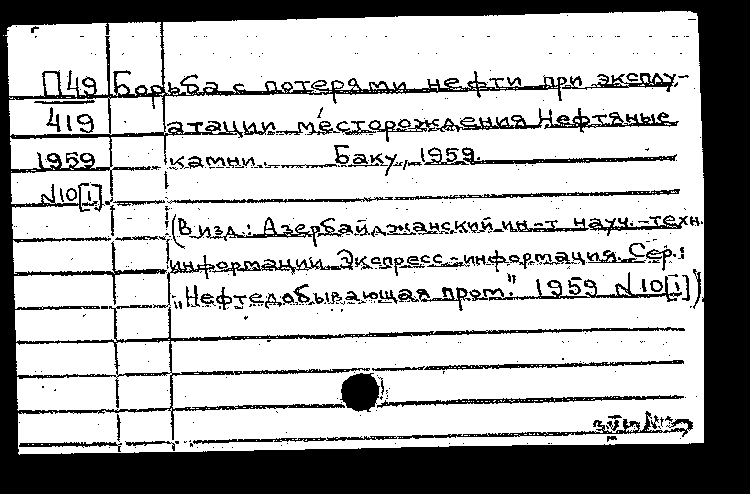 П49 Борьба с потерями нефти при эксплу-
419 атации месторождения Нефтяные
1959 камни. Баку, 1959.
№10[1]
(В изд.: Азербайджанский ин-т науч.-техн.
информации. Экспресс-информация. Сер.:
„Нефтедобывающая пром." 1959 №10[1])